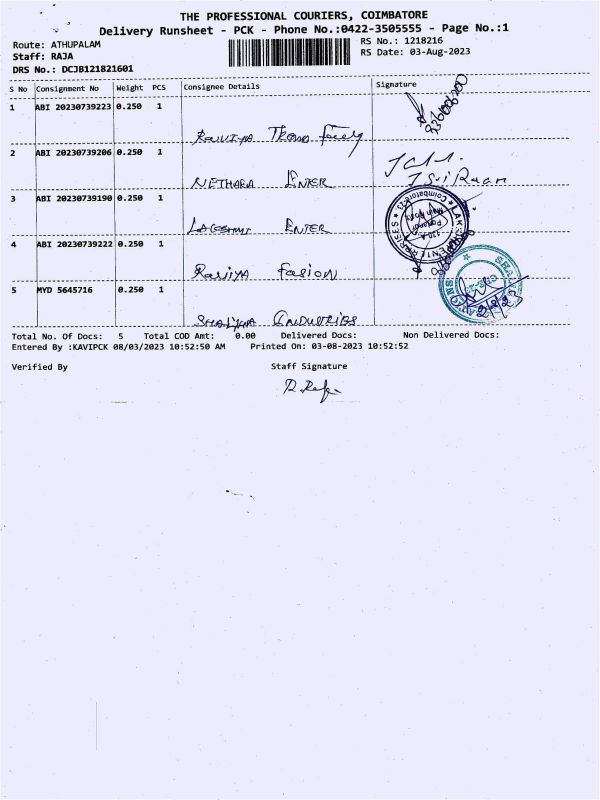 THE PROFESSIONAL COURIERS, COIMBATORE
Delivery Runsheet - PCK - Phone No.:0422-3505555 - Page No.:1
Route: ATHUPALAM
RS No.: 1218216
Staff: RAJA
RS Date: 03-Aug-2023
DRS No.: DCJB121821601
S No Consignment No Weight PCS Consignee Details Signature
1 ABI 20230739223 0.250 1
2 ABI 20230739206 0.250 1
NETHARA ENTER
3 ABI 20230739190 0.250 1
ENTER
4 ABI 20230739222 0.250 1
5 MYD 5645716 0.250 1
Total No. Of Docs: 5 Total COD Amt: 0.00 Delivered Docs: Non Delivered Docs:
Entered By :KAVIPCK 08/03/2023 10:52:50 AM Printed On: 03-08-2023 10:52:52
Verified By Staff Signature